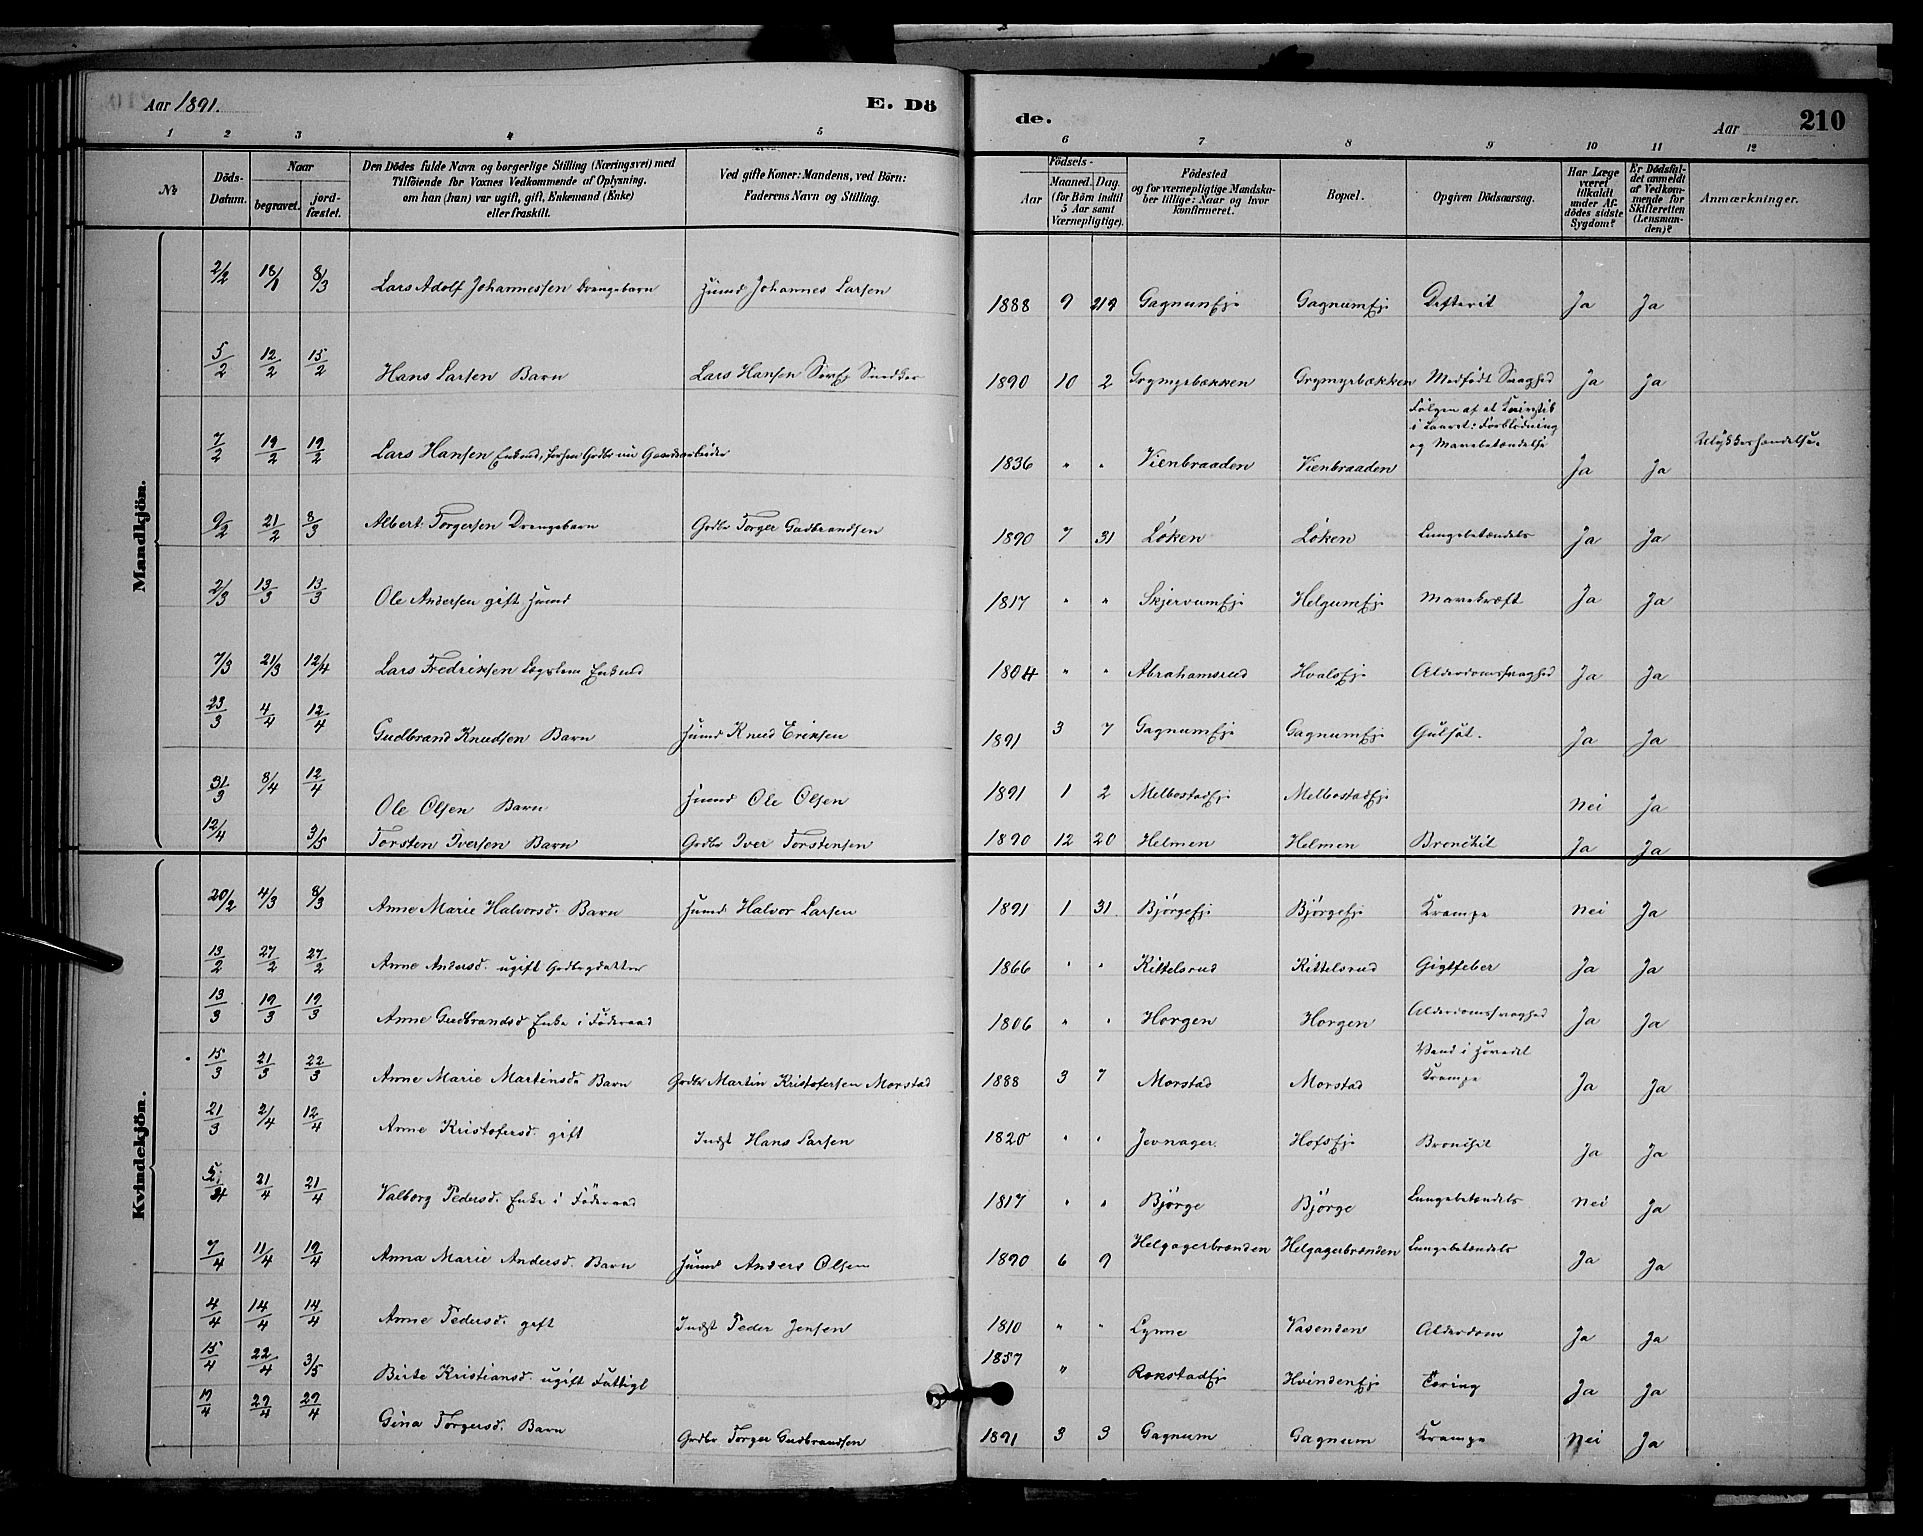 Aar 1891. E. Dö de. Aar 210
1 2 3 4 5 6 7 8 9 10 11 12
№ Döds-Datum. Naar begravet. jordfæstet. Den Dödes fulde Navn og borgerlige Stilling (Næringsvei) med Tilföiende for Voxnes Vedkommende af Oplysning, om han (hun) var ugift, gift, Enkemand (Enke) eller fraskilt. Ved gifte Koner: Mandens, ved Börn: Faderens Navn og Stilling. Födsels- Aar Maaned. Dag. (for Börn indtil 5 Aar samt Værnepligtige). Födested og for værnepligtige Mandskaber tillige: Naar og hvor konfirmeret. Bopæl. Opgiven Dödsaarsag. Har Læge været tilkaldt under Afdödes sidste Sygdom? Er Dödsfaldet anmeldt af Vedkommende for Skifteretten (Lensmanden)? Anmærkninger.
Mandkjön.
2/2 18/ 8/3 Lars Adolf Johannessen Drengebarn Husmd Johannes Larsen 1888 9 Gagnumeje Gagnumeje Difterit Ja Ja
5/2 12/2 15/2 Hans Larsen Barn Lars Hansen Snedker 1890 10 2 Grymyrbækken Grymyrbækken Medfødt Svaghed Ja Ja
7/2 19/2 19/2 Lars Hansen Enkmd, forhen Gdbr nu Gaardsarbeider 1836 " " Vienbraaden Vienbraaden Følgen af et Knivstik i Laaret: Forblødning og Mavebetændelse Ja Ja Ulykkeshændelse.
9/2 21/2 8/3 Albert Torgersen Drengebarn Grdbr Torger Gudbrandsen 1890 7 31 Løken Løken Lungebetændels Ja Ja
2/3 13/3 13/3 Ole Andersen gift Husmd 1817 " " Skjervumeje Helgumeje Mavekræft Ja Ja
7/3 21/3 12/4 Lars Fredriksen Lægslem Enkmd 1804 " " Abrahamsrud Hvalseje Alderdomssvaghed Ja Ja
23/3 4/4 12/4 Gudbrand Knudsen Barn Husmd Knud Eriksen 1891 3 7 Gagnumeje Gagnumeje Gulsot. Ja Ja
31/3 8/4 12/4 Ole Olsen Barn Husmd Ole Olsen 1891 1 2 Melbostadeje Melbostadeje Nei Ja
12/4 3/5 Torsten Iversen Barn Grdbr Iver Torstensen 1890 12 20 Helmen Helmen Bronchit Ja Ja
Kvindekjön.
20/2 4/3 8/3 Anne Marie Halvorsd. Barn Husmd Halvor Larsen 1891 1 31 Bjørgeeje Bjørgeeje Krampe Nei Ja
13/2 27/2 27/2 Anne Andersd. ugift Grdbrgdatter 1866 " " Kittelsrud Kittelsrud Gigtfeber Ja Ja
13/3 19/3 19/3 Anne Gudbrandsd Enke i Føderaad 1806 " " Horgen Horgen Alderdomssvaghed Ja Ja
15/3 21/3 22/3 Anne Marie Martinsd. Barn Grdbr Martin Kristofersen Morstad 1888 3 7 Morstad Morstad Vand i Hovedet Krampe Ja Ja
21/3 2/4 12/4 Anne Kristofersd. gift Indst Hans Larsen 1820 " " Jevnager. Hofseje Bronchit Ja Ja
21/4 21/4 Valborg Pedersd. Enke i Føderaad 1817 " " Bjørge Bjørge Lungebetændels Nei Ja
7/4 11/4 19/4 Anna Marie Andersd. Barn Husmd Anders Olsen 1890 6 9 Helgagerbrænden Helgagerbrænden Lungebetændels Ja Ja
4/4 14/4 14/4 Anne Pedersd. gift Indst Peder Jensen 1810 " " Lynne Vasenden Alderdom Ja Ja
15/4 22/4 3/5 Birte Kristiansd. ugift Fattigl 1857 " Rokstadeje Hvindeneje Tæring Ja Ja
17/4 29/4 29/4 Gina Torgersd. Barn Grdbr Torger Gudbrandsen 1891 3 3 Gagnum Gagnum Krampe Nei Ja